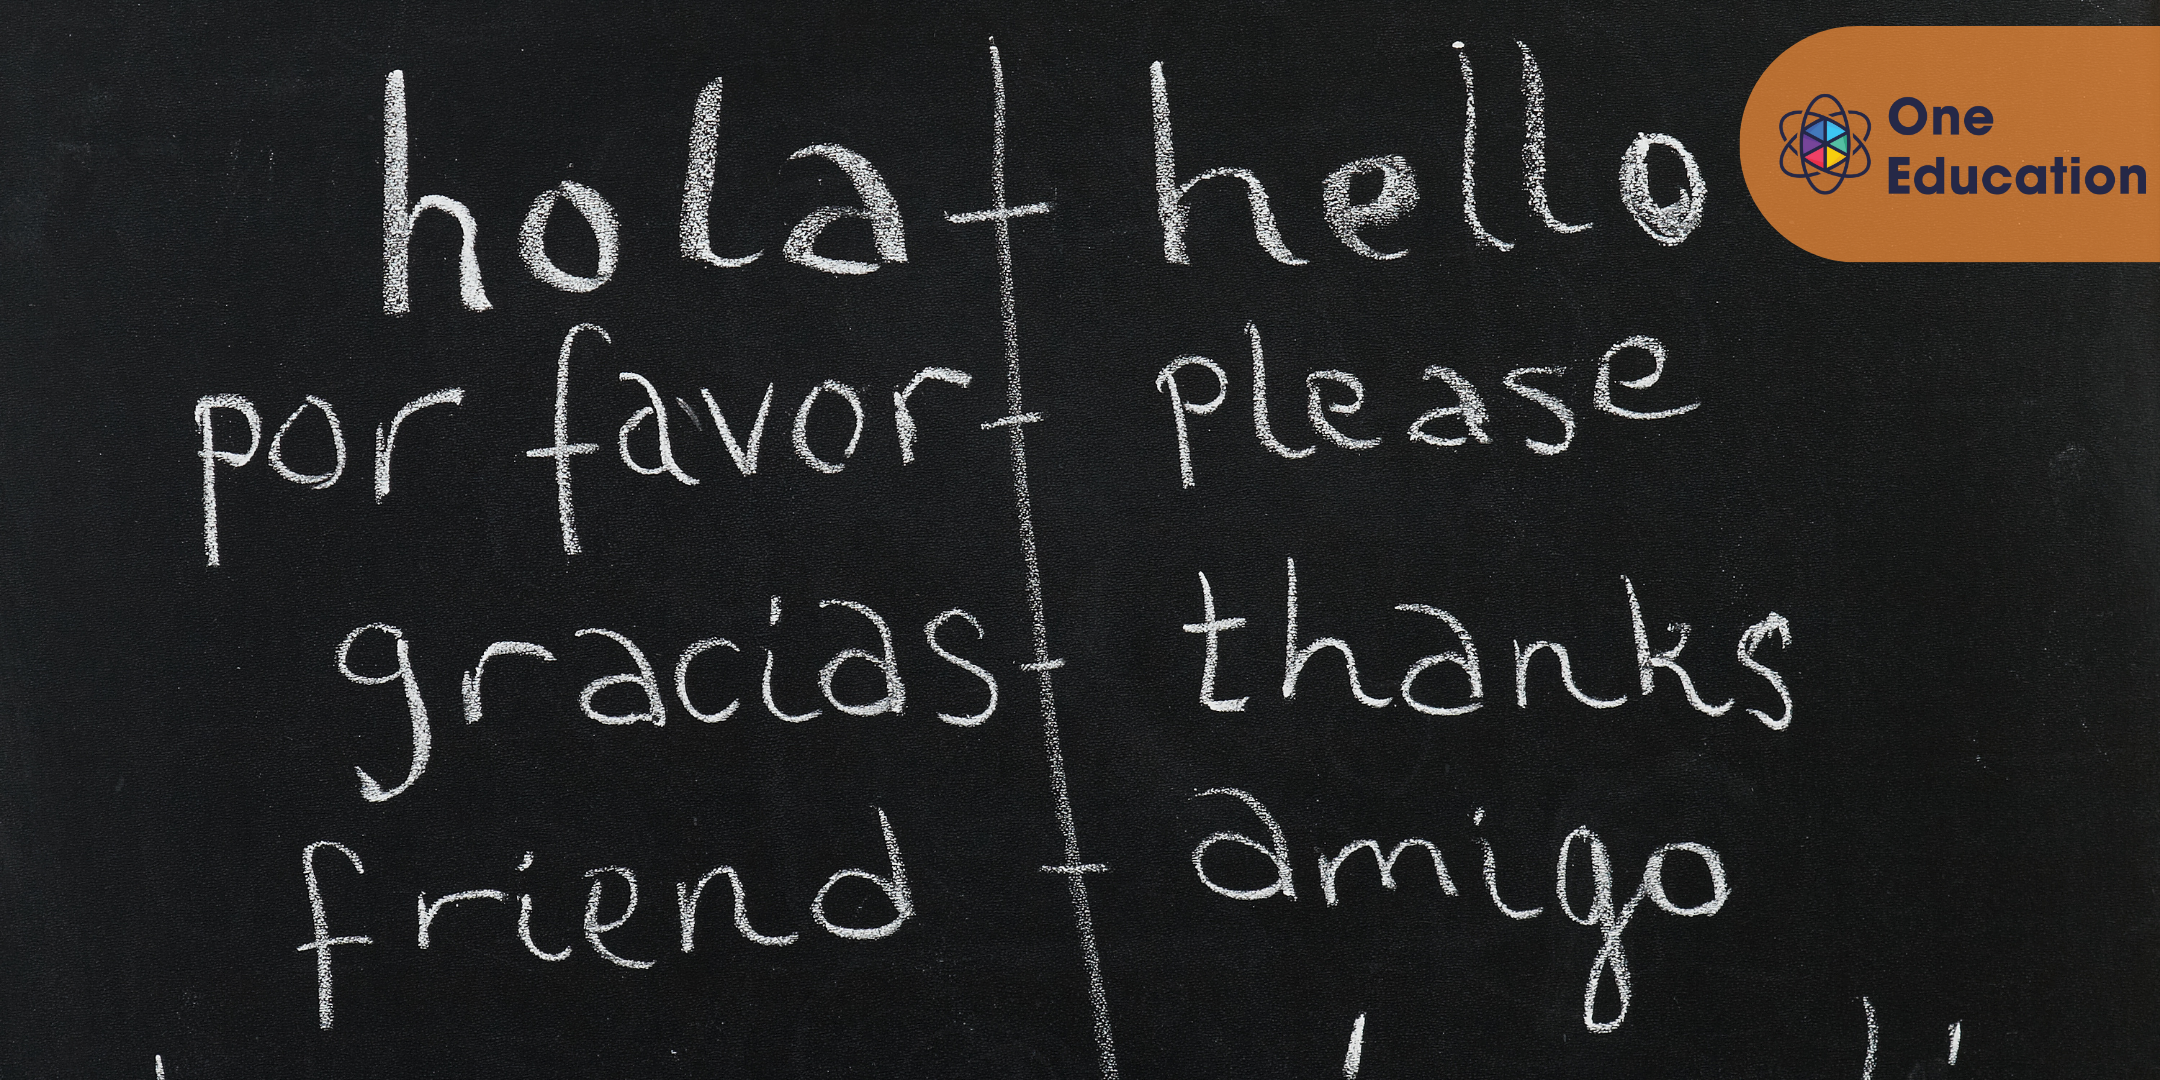 hola - hello
One
Education
por favor - please
gracias - thanks
friend - amigo